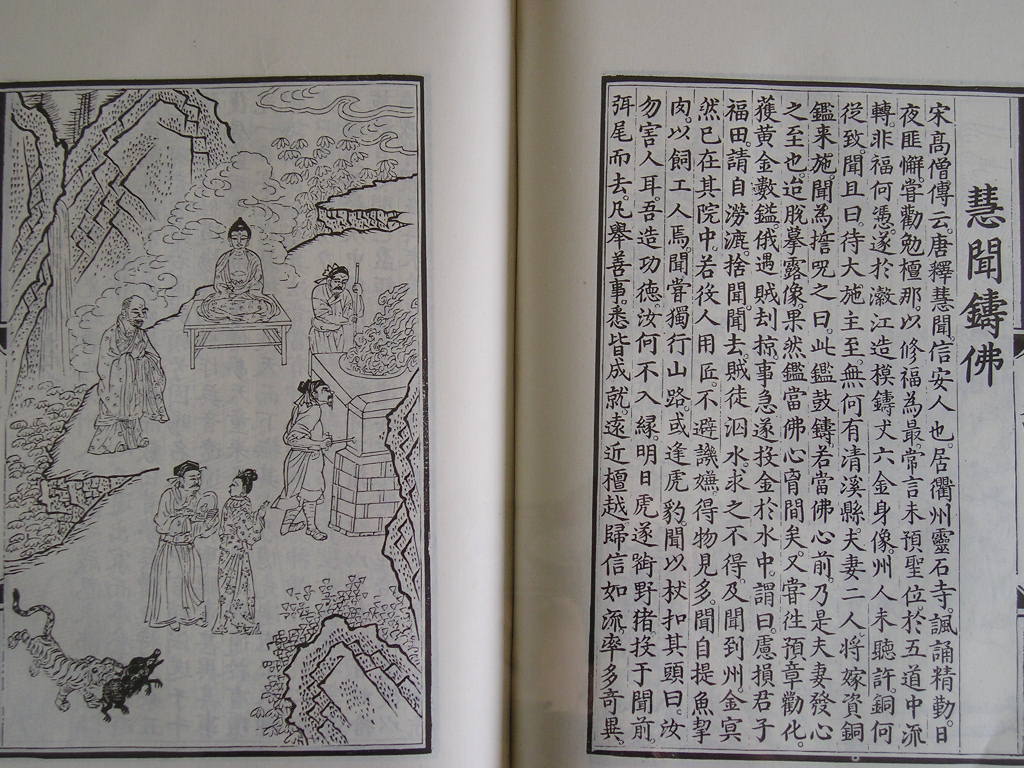 慧聞鑄佛
宋高僧傳云。唐釋慧聞。信安人也。居衢州靈石寺。諷誦精勤。日
夜匪懈。嘗勸勉檀那。以修福為最。常言未預聖位。於五道中流
轉。非福何憑。遂於瀫江造模鑄丈六金身像。州人未聽許。銅何
從致。聞且曰。待大施主至。無何有清溪縣。夫妻二人將嫁資銅
鑑來施。聞為擔呪之曰。此鑑鼓鑄。若當佛心前。乃是夫妻發心
之至也。迨脫摹露像。果然鑑當佛心胷間矣。又嘗往預章勸化。
獲黃金數鎰。俄遇賊刦掠。事急。遂投金於水中。謂曰。慮損君子
福田。請自澇漉。捨聞。聞去。賊徒泅水。求之不得。及聞到州。金冥
然已在其院中。若役人用匠。不避譏嫌。得物見多。聞自提魚挈
肉。以飼工人焉。聞嘗獨行山路。或逢虎豹。聞以杖扣其頭曰。汝
勿害人耳。吾造功德。汝何不入緣。明日虎遂銜野猪。投于聞前。
弭尾而去。凡舉善事。悉皆成就。遠近檀越歸信如流。率多奇異。